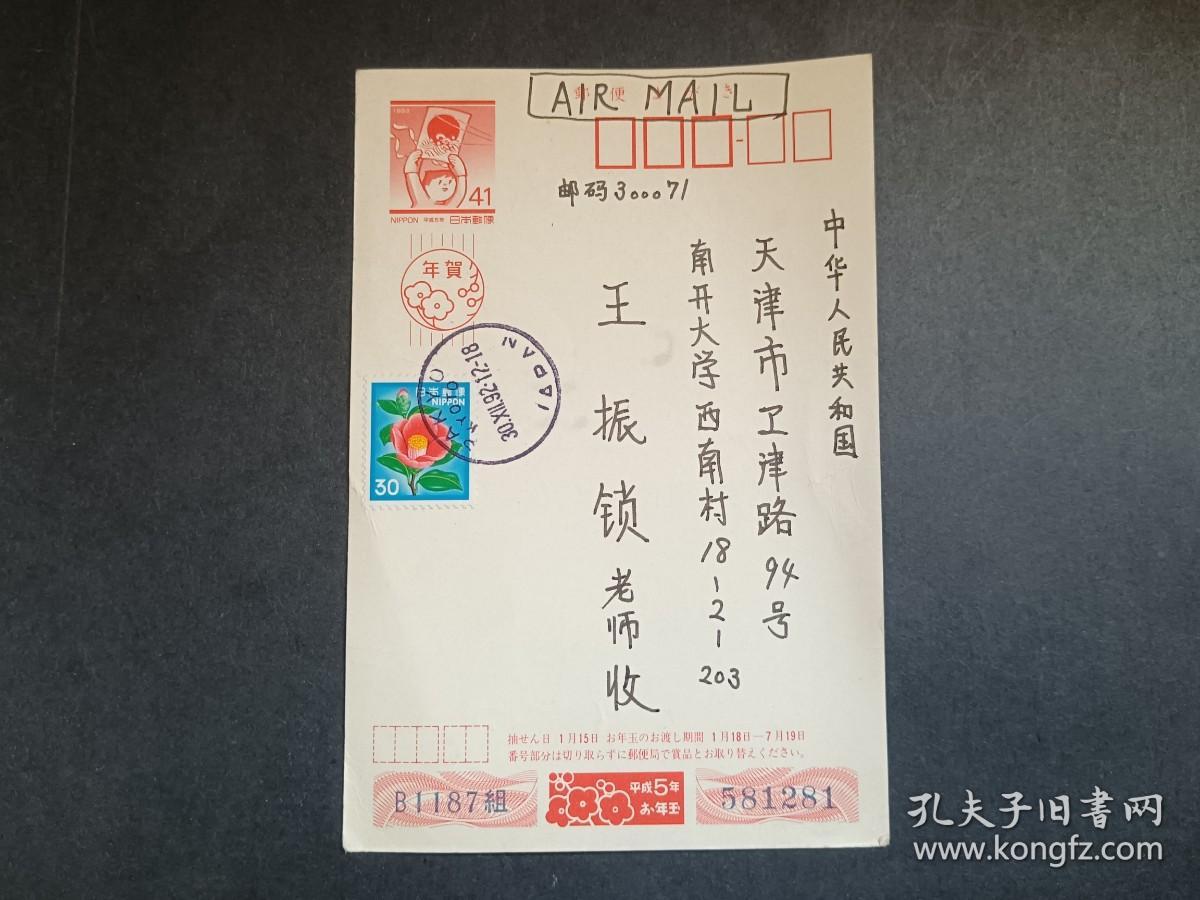 AIR MAIL
郵便はがき
1993
41
NIPPON 平成五年 日本郵便
年賀
邮码300071
中华人民共和国
天津市卫津路94号
南开大学西南村18-2-203
王振锁老师收
JAPAN
30.XII.92.12-18
TOKYO
日本郵便
NIPPON
30
抽せん日 1月15日 お年玉のお渡し期間 1月18日—7月19日
番号部分は切り取らずに郵便局で賞品とお取り替えください。
B1187組
平成5年
お年玉
581281
孔夫子旧书网
www.kongfz.com